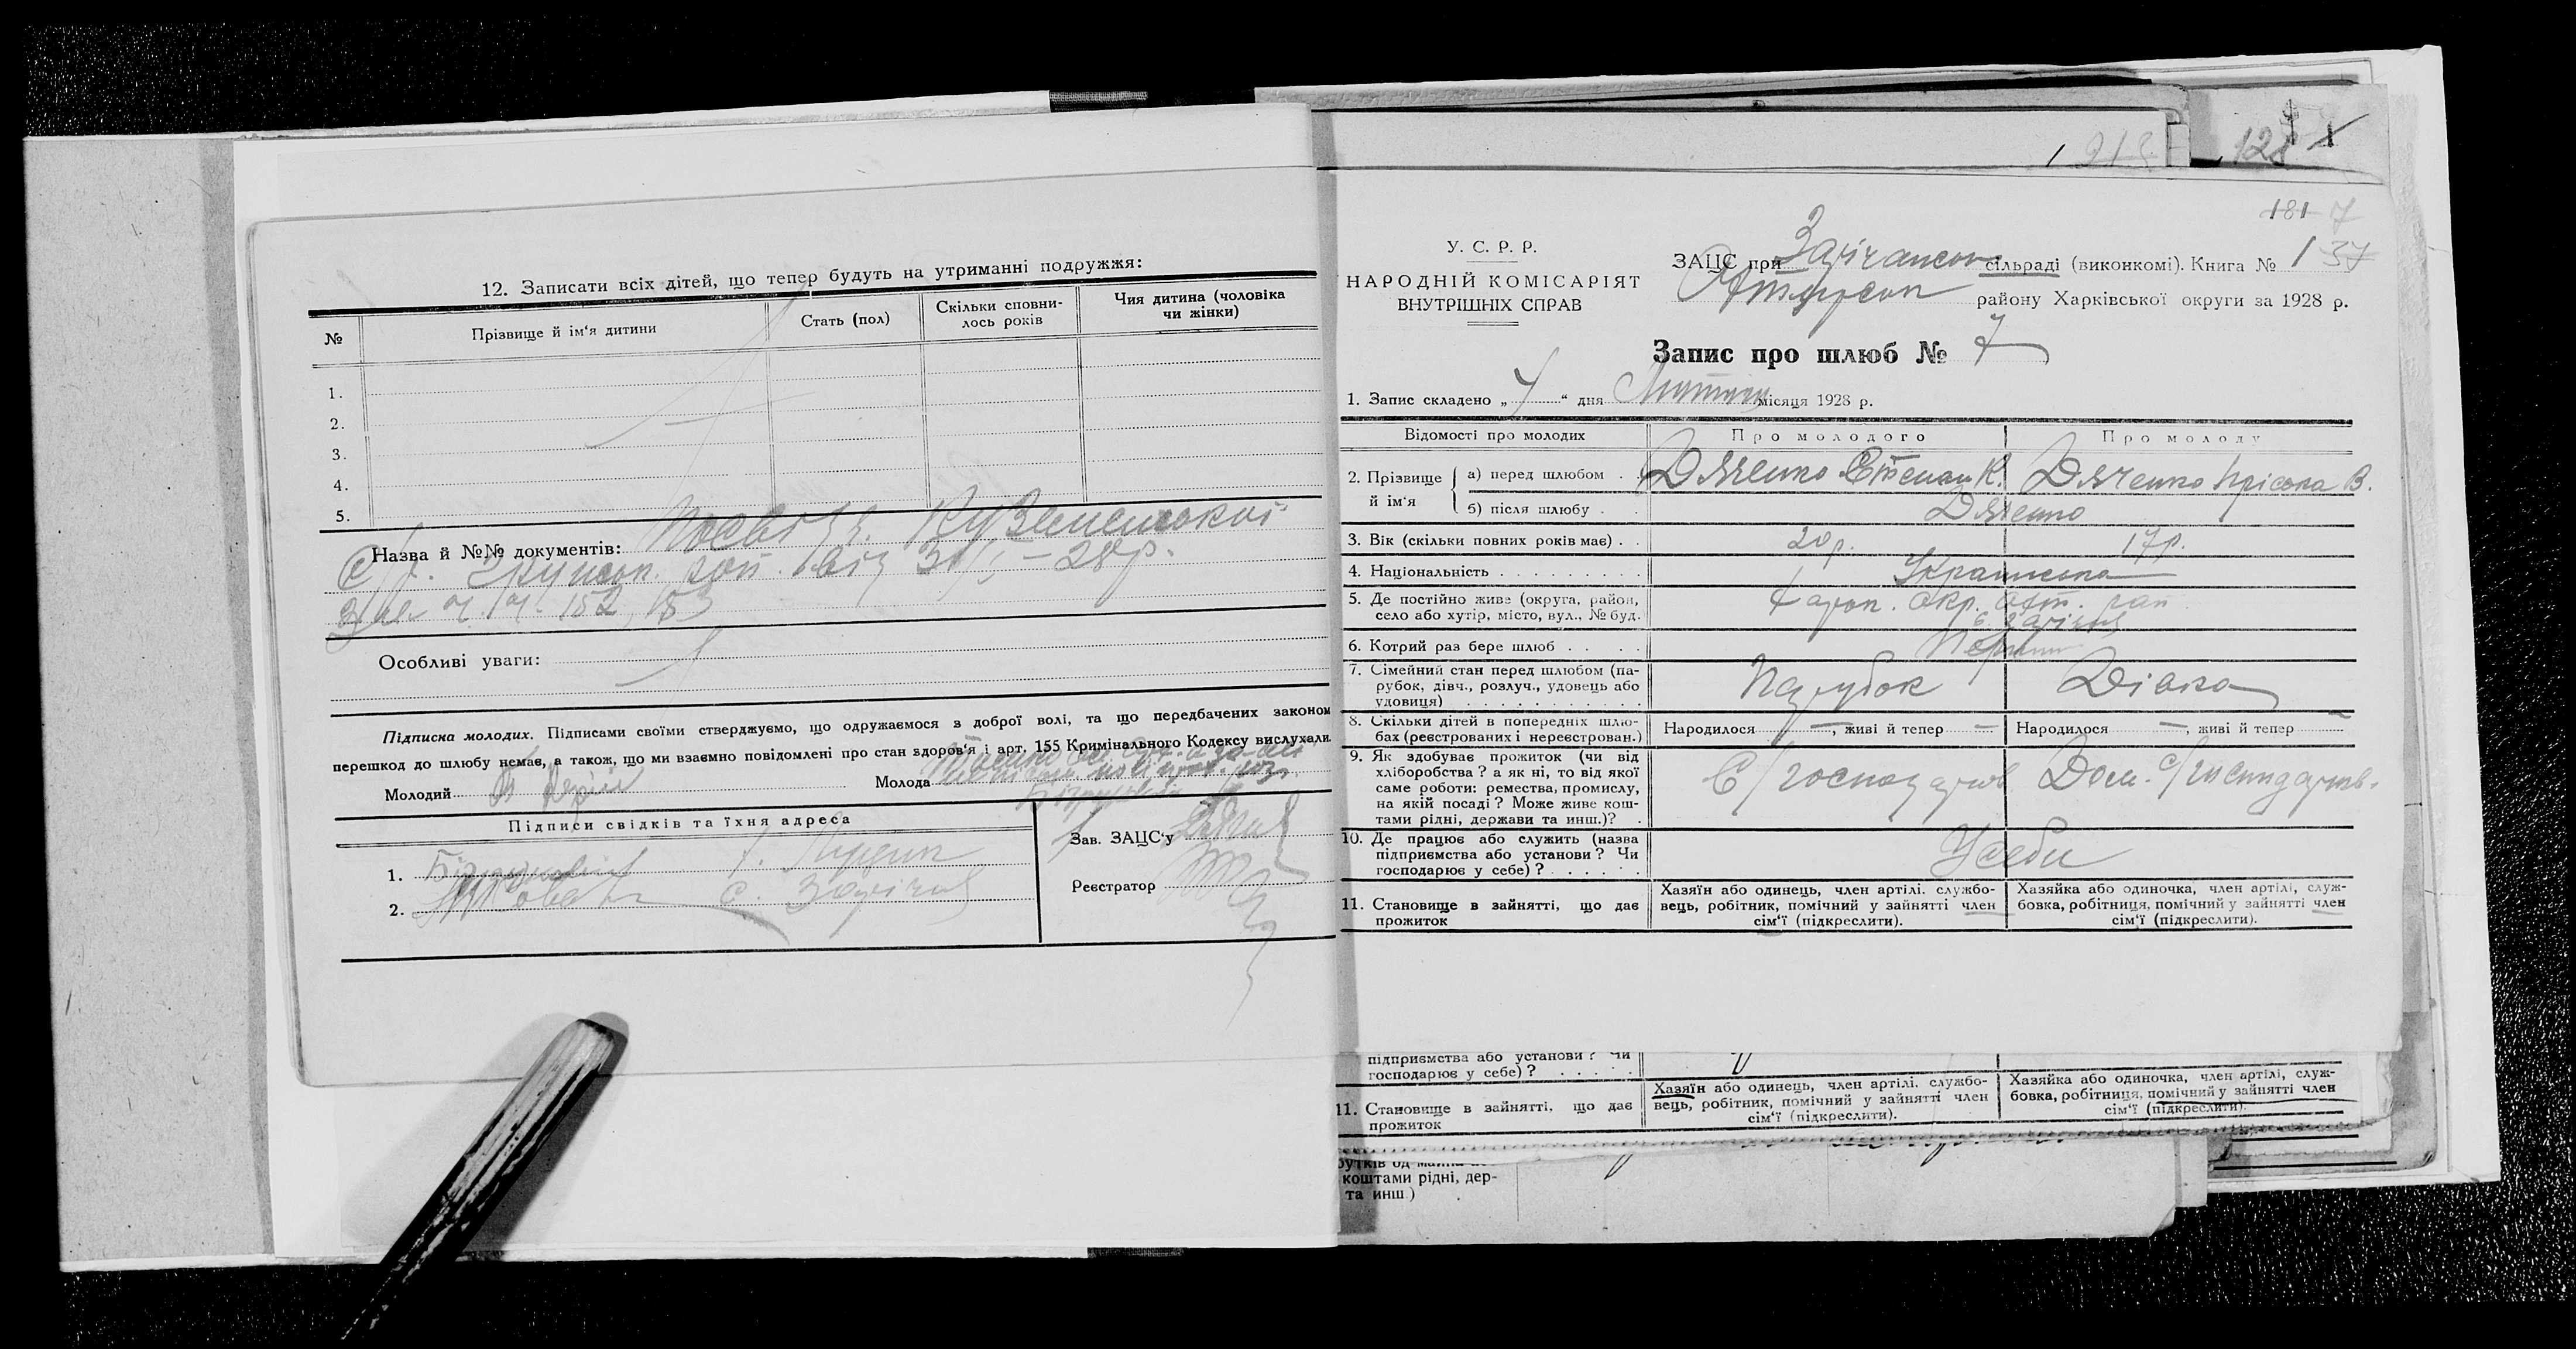 12. Записати всіх дітей, що тепер будуть на утриманні подружжя:
№
Прізвище й ім'я дитини
Стать (пол)
Скільки сповни-
лось років
Чия дитина (чоловіка
чи жінки)
1.
2.
3.
4.
5.
Назва й №№ документів:
від 31/I – 28р.
152, 153
Особливі уваги:
Підписка молодих. Підписами своїми стверджуємо, що одружаємося з доброї волі, та що передбачених законом
перешкод до шлюбу немає, а також, що ми взаємно повідомлені про стан здоров'я і арт. 155 Кримінального Кодексу вислухали.
Молодий
Молода
Підписи свідків та їхня адреса
Зав. ЗАЦС'у
1.
2. с. Зарічча
Реєстратор
1
128
181 7
У. С. Р. Р.
НАРОДНІЙ КОМІСАРІЯТ
ВНУТРІШНІХ СПРАВ
ЗАЦС при сільраді (виконкомі). Книга № 1 37
району Харківської округи за 1928 р.
Запис про шлюб № 7
1. Запис складено „ 4 “ дня Лютого місяця 1928 р.
Відомості про молодих
Про молодого
Про молоду
2. Прізвище й ім'я
а) перед шлюбом . . Дяченко Степан К. Дяченко Пріська В.
б) після шлюбу . . Дяченко
3. Вік (скільки повних років має) . . 20 р. 17 р.
4. Національність . . . . . . . . . Українська
5. Де постійно живе (округа, район,
село або хутір, місто, вул., № буд. Харк. окр. Охт. рай.
6. Котрий раз бере шлюб . . . . Перший
7. Сімейний стан перед шлюбом (па-
рубок, дівч., розлуч., удовець або
удовиця) . . . . . . . . . . . Парубок Дівка
8. Скільки дітей в попередніх шлю-
бах (реєстрованих і нереєстрован.)
Народилося —, живі й тепер —
Народилося —, живі й тепер —
9. Як здобуває прожиток (чи від
хліборобства? а як ні, то від якої
саме роботи: ремества, промислу,
на якій посаді? Може живе кош-
тами рідні, держави та инш.)? .
С/господарств Дом. с/господарств.
10. Де працює або служить (назва
підприємства або установи? Чи
господарює у себе)? . . . . . . У себе
11. Становище в зайнятті, що дає
прожиток
Хазяїн або одинець, член артілі, службо-
вець, робітник, помічний у зайнятті член
сім'ї (підкреслити).
Хазяйка або одиночка, член артілі, служ-
бовка, робітниця, помічний у зайнятті член
сім'ї (підкреслити).
підприємства або установи? Чи
господарює у себе)? . . . . .
11. Становище в зайнятті, що дає
прожиток
Хазяїн або одинець, член артілі, службо-
вець, робітник, помічний у зайнятті член
сім'ї (підкреслити).
Хазяйка або одиночка, член артілі, служ-
бовка, робітниця, помічний у зайнятті член
сім'ї (підкреслити).
коштами рідні, дер-
та инш.)